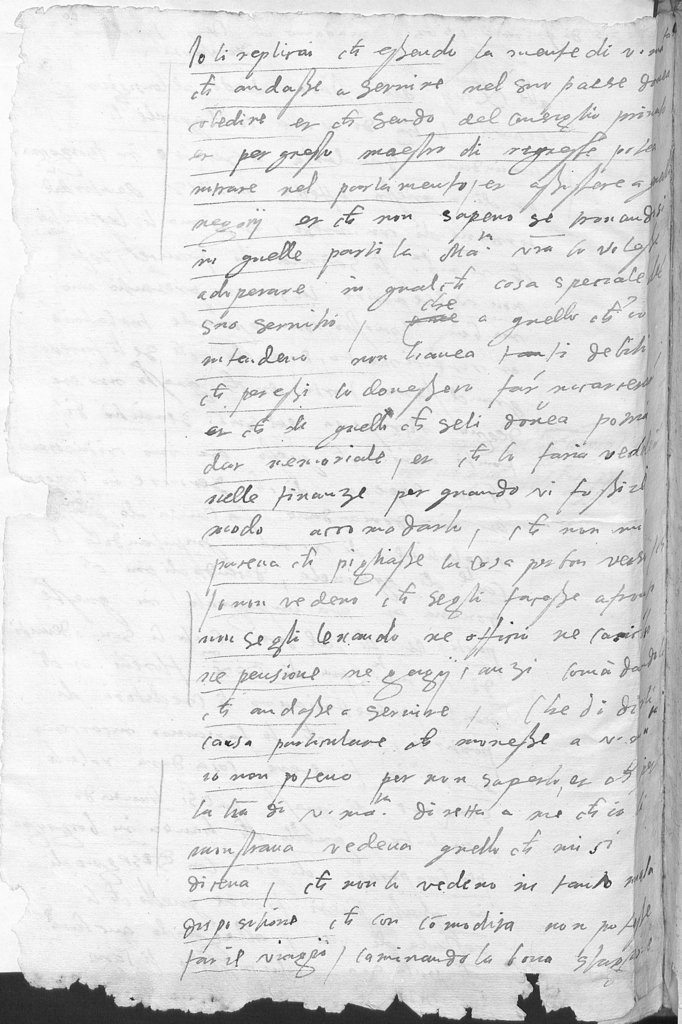 Io li replicai ch essendo la mente di v. m.ta
ch andasse a servire nel suo paese
obedire et ch sendo del consiglio
et per questo maestro di
ntrare nel parlamento, et assistere a
negotij et ch non sapevo se trovandosi
in quelle parti la Ma.ta vra lo
adoperare in qualch cosa speciale
suo servitio, che a quello ch io
intendevo non haveva tanti debiti
ch per essi lo dovessero far
et ch di quelli ch seli doveva
dar memoriale, et ch lo faria
nelle finanze per quando vi fusse il
modo accomodarlo, ch non mi
pareva ch pigliasse la cosa per bon verso
Io non vedevo ch segli facesse
non segli levando ne officio ne
ne pensione ne gaggij, anzi comādandoli
ch andasse a servire, Che di
causa particulare ch movesse a v. m.ta
io non potevo per non saperlo, et ch
la lra di v. ma.ta diretta a me ch io li
monstrava vedeva quello ch mi si
diceva, ch non lo vedevo in tanto mala
dispositione ch con cōmodita non potesse
far il viaggio, caminando la bona